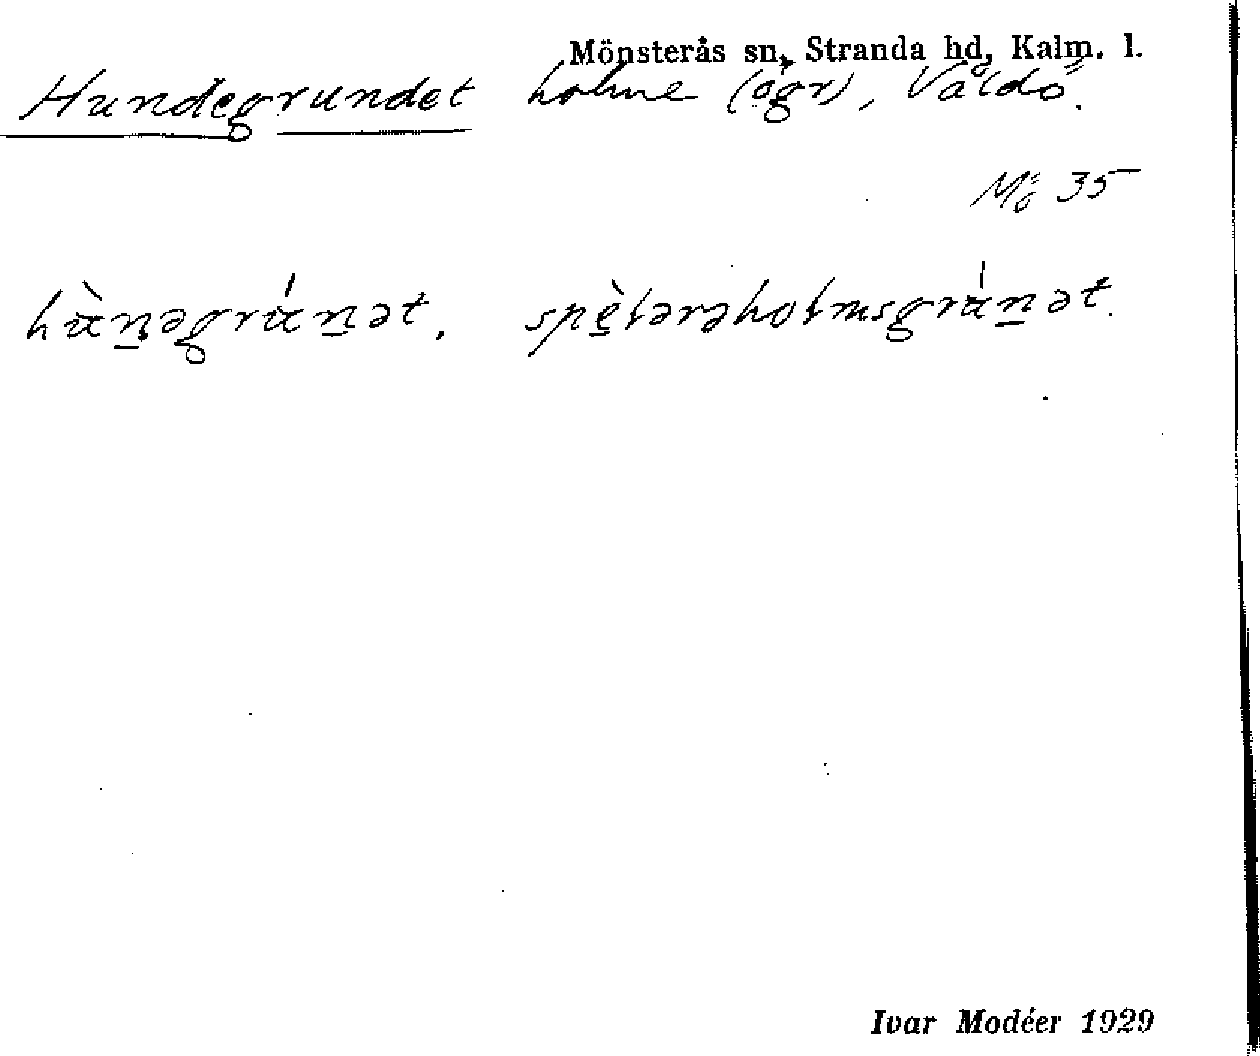 Mönsterås sn, Stranda hd, Kalm. l.
Hundegrundet holme (ögr), Våldö.
Mö 35
hὰn̲əgrάn̲ət. spè̱tərəholmsgrάn̲ət.
Ivar Modéer 1929